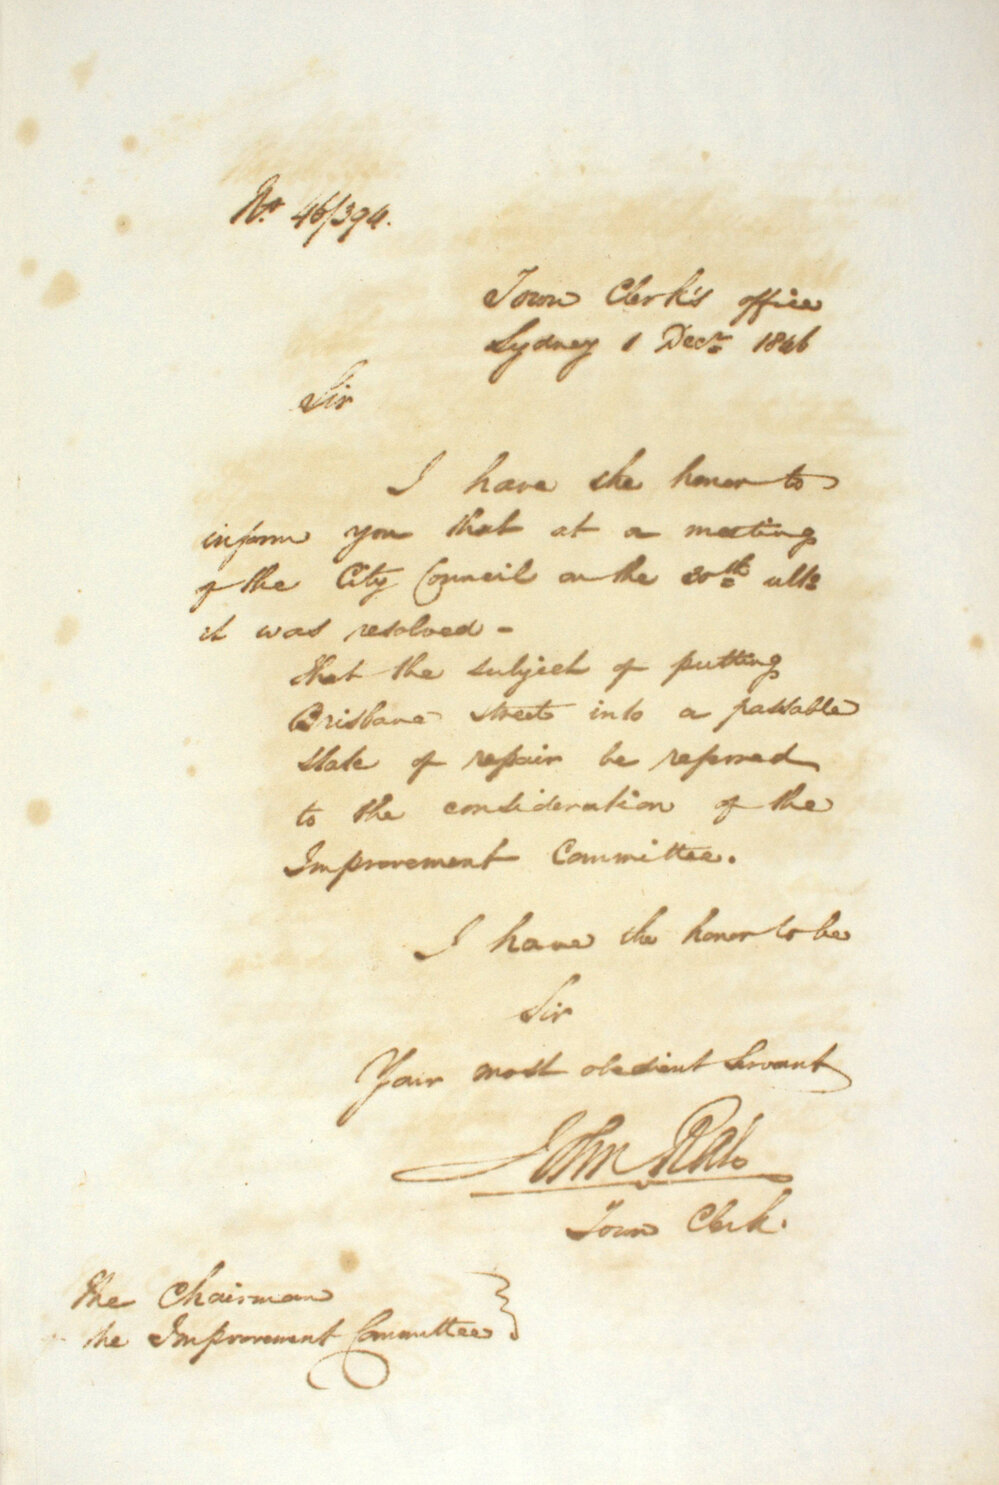 No. 46/394.
Town Clerk's office
Sydney 1 Decr. 1846
Sir
I have the honor to
inform you that at a meeting
of the City Council on the 30th ulto
it was resolved -
that the subject of putting
Brisbane street into a passable
state of repair be referred
to the consideration of the
Improvement Committee.
I have the honor to be
Sir
Your most obedient Servant
John Rae
Town Clerk.
The Chairman
the Improvement Committee